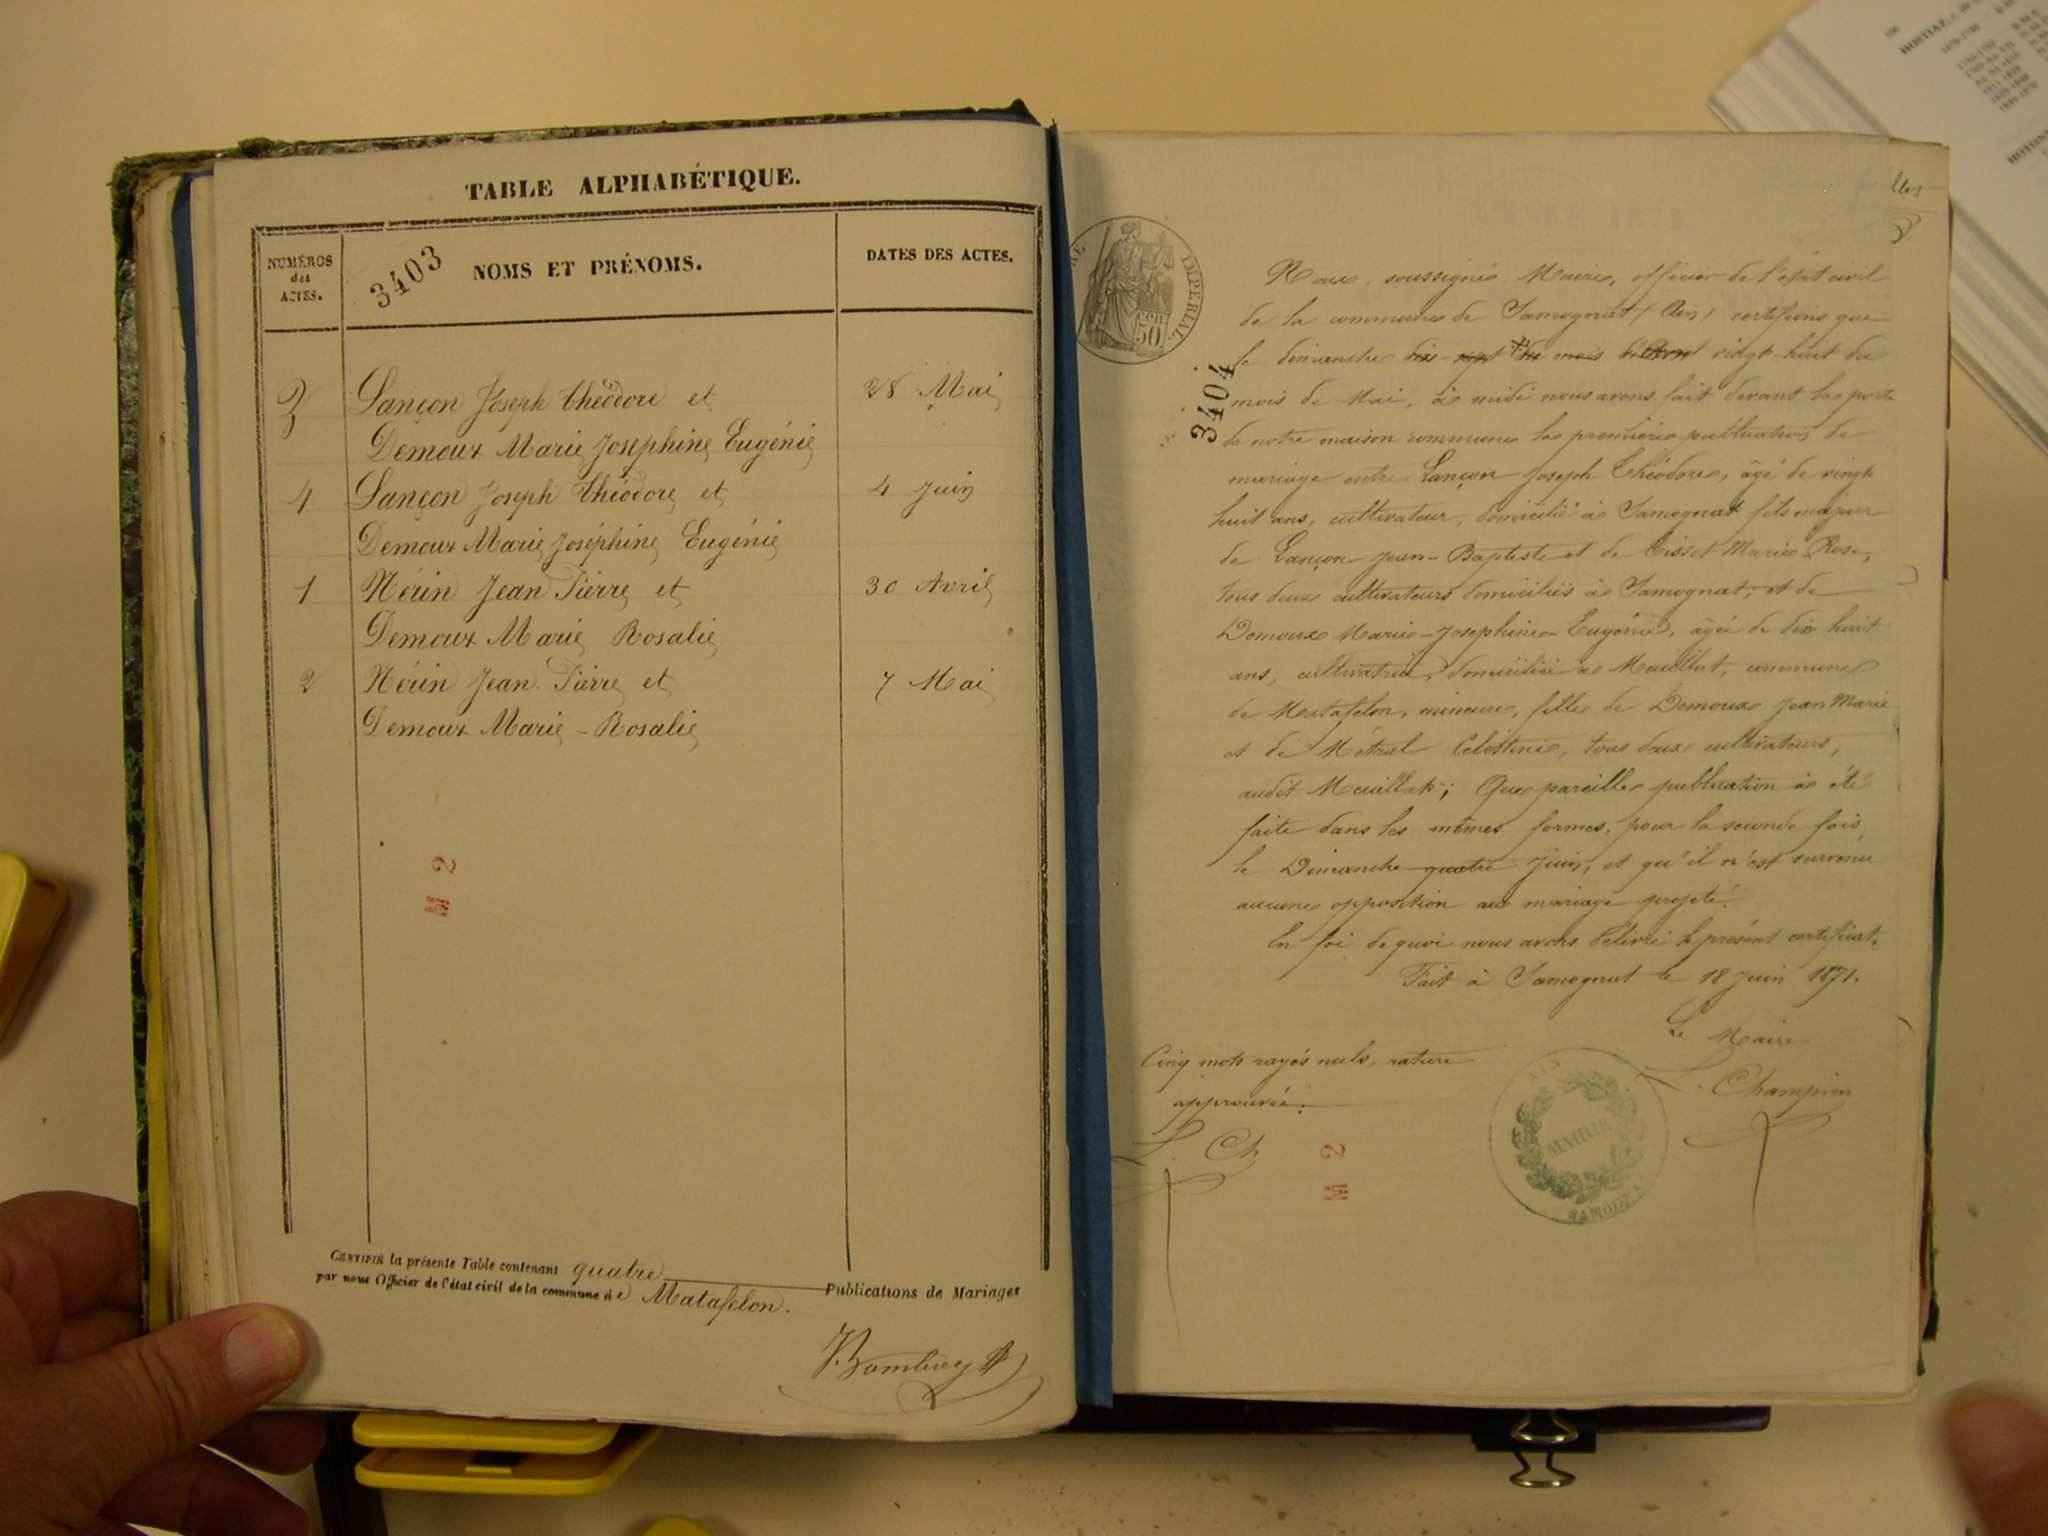 TABLE ALPHABÉTIQUE.
NUMÉROS des ACTES.
3403
NOMS ET PRÉNOMS.
DATES DES ACTES.
3 Lançon Joseph théodore et 28 Mai
Demoux Marie Joséphine Eugénie
4 Lançon Joseph théodore et 4 Juin
Demoux Marie Joséphine Eugénie
1 Nérin Jean Pierre et 30 Avril
Demoux Marie Rosalie
2 Nérin Jean Pierre et 7 Mai
Demoux Marie - Rosalie
M 2
CERTIFIÉ la présente Table contenant quatre Publications de Mariages
par nous Officier de l'état civil de la commune de Matafelon.
IMPERIAL.
50 CEN
3404
Nous, soussigné Maire, officier de l'état civil
de la commune de Samognat (Ain) certifions que
le dimanche dix-sept du mois d'Avril vingt-huit du
mois de Mai, à midi nous avons fait devant la porte
de notre maison commune la première publication de
mariage entre Lançon Joseph Théodore, âgé de vingt
huit ans, cultivateur, domicilié à Samognat fils majeur
de Lançon Jean-Baptiste et de Tissot Marie Rose,
tous deux cultivateurs domiciliés à Samognat; et de
Demoux Marie-Josephine-Eugénie, âgée de dix huit
ans, cultivatrice, domiciliée à Meuillat, commune
de Matafelon, mineure, fille de Demoux Jean Marie
et de Métral Célestine, tous deux cultivateurs,
audit Meuillat; Que pareille publication a été
faite dans les mêmes formes, pour la seconde fois,
le Dimanche quatre Juin, et qu'il n'est survenu
aucune opposition au mariage projeté.
En foi de quoi nous avons délivré le présent certificat.
Fait à Samognat le 18 Juin 1871.
Le Maire
L. Champion
Cinq mots rayés nuls, rature
approuvée.
L. Ch
M 2
AIN
MAIRIE
SAMOGNAT